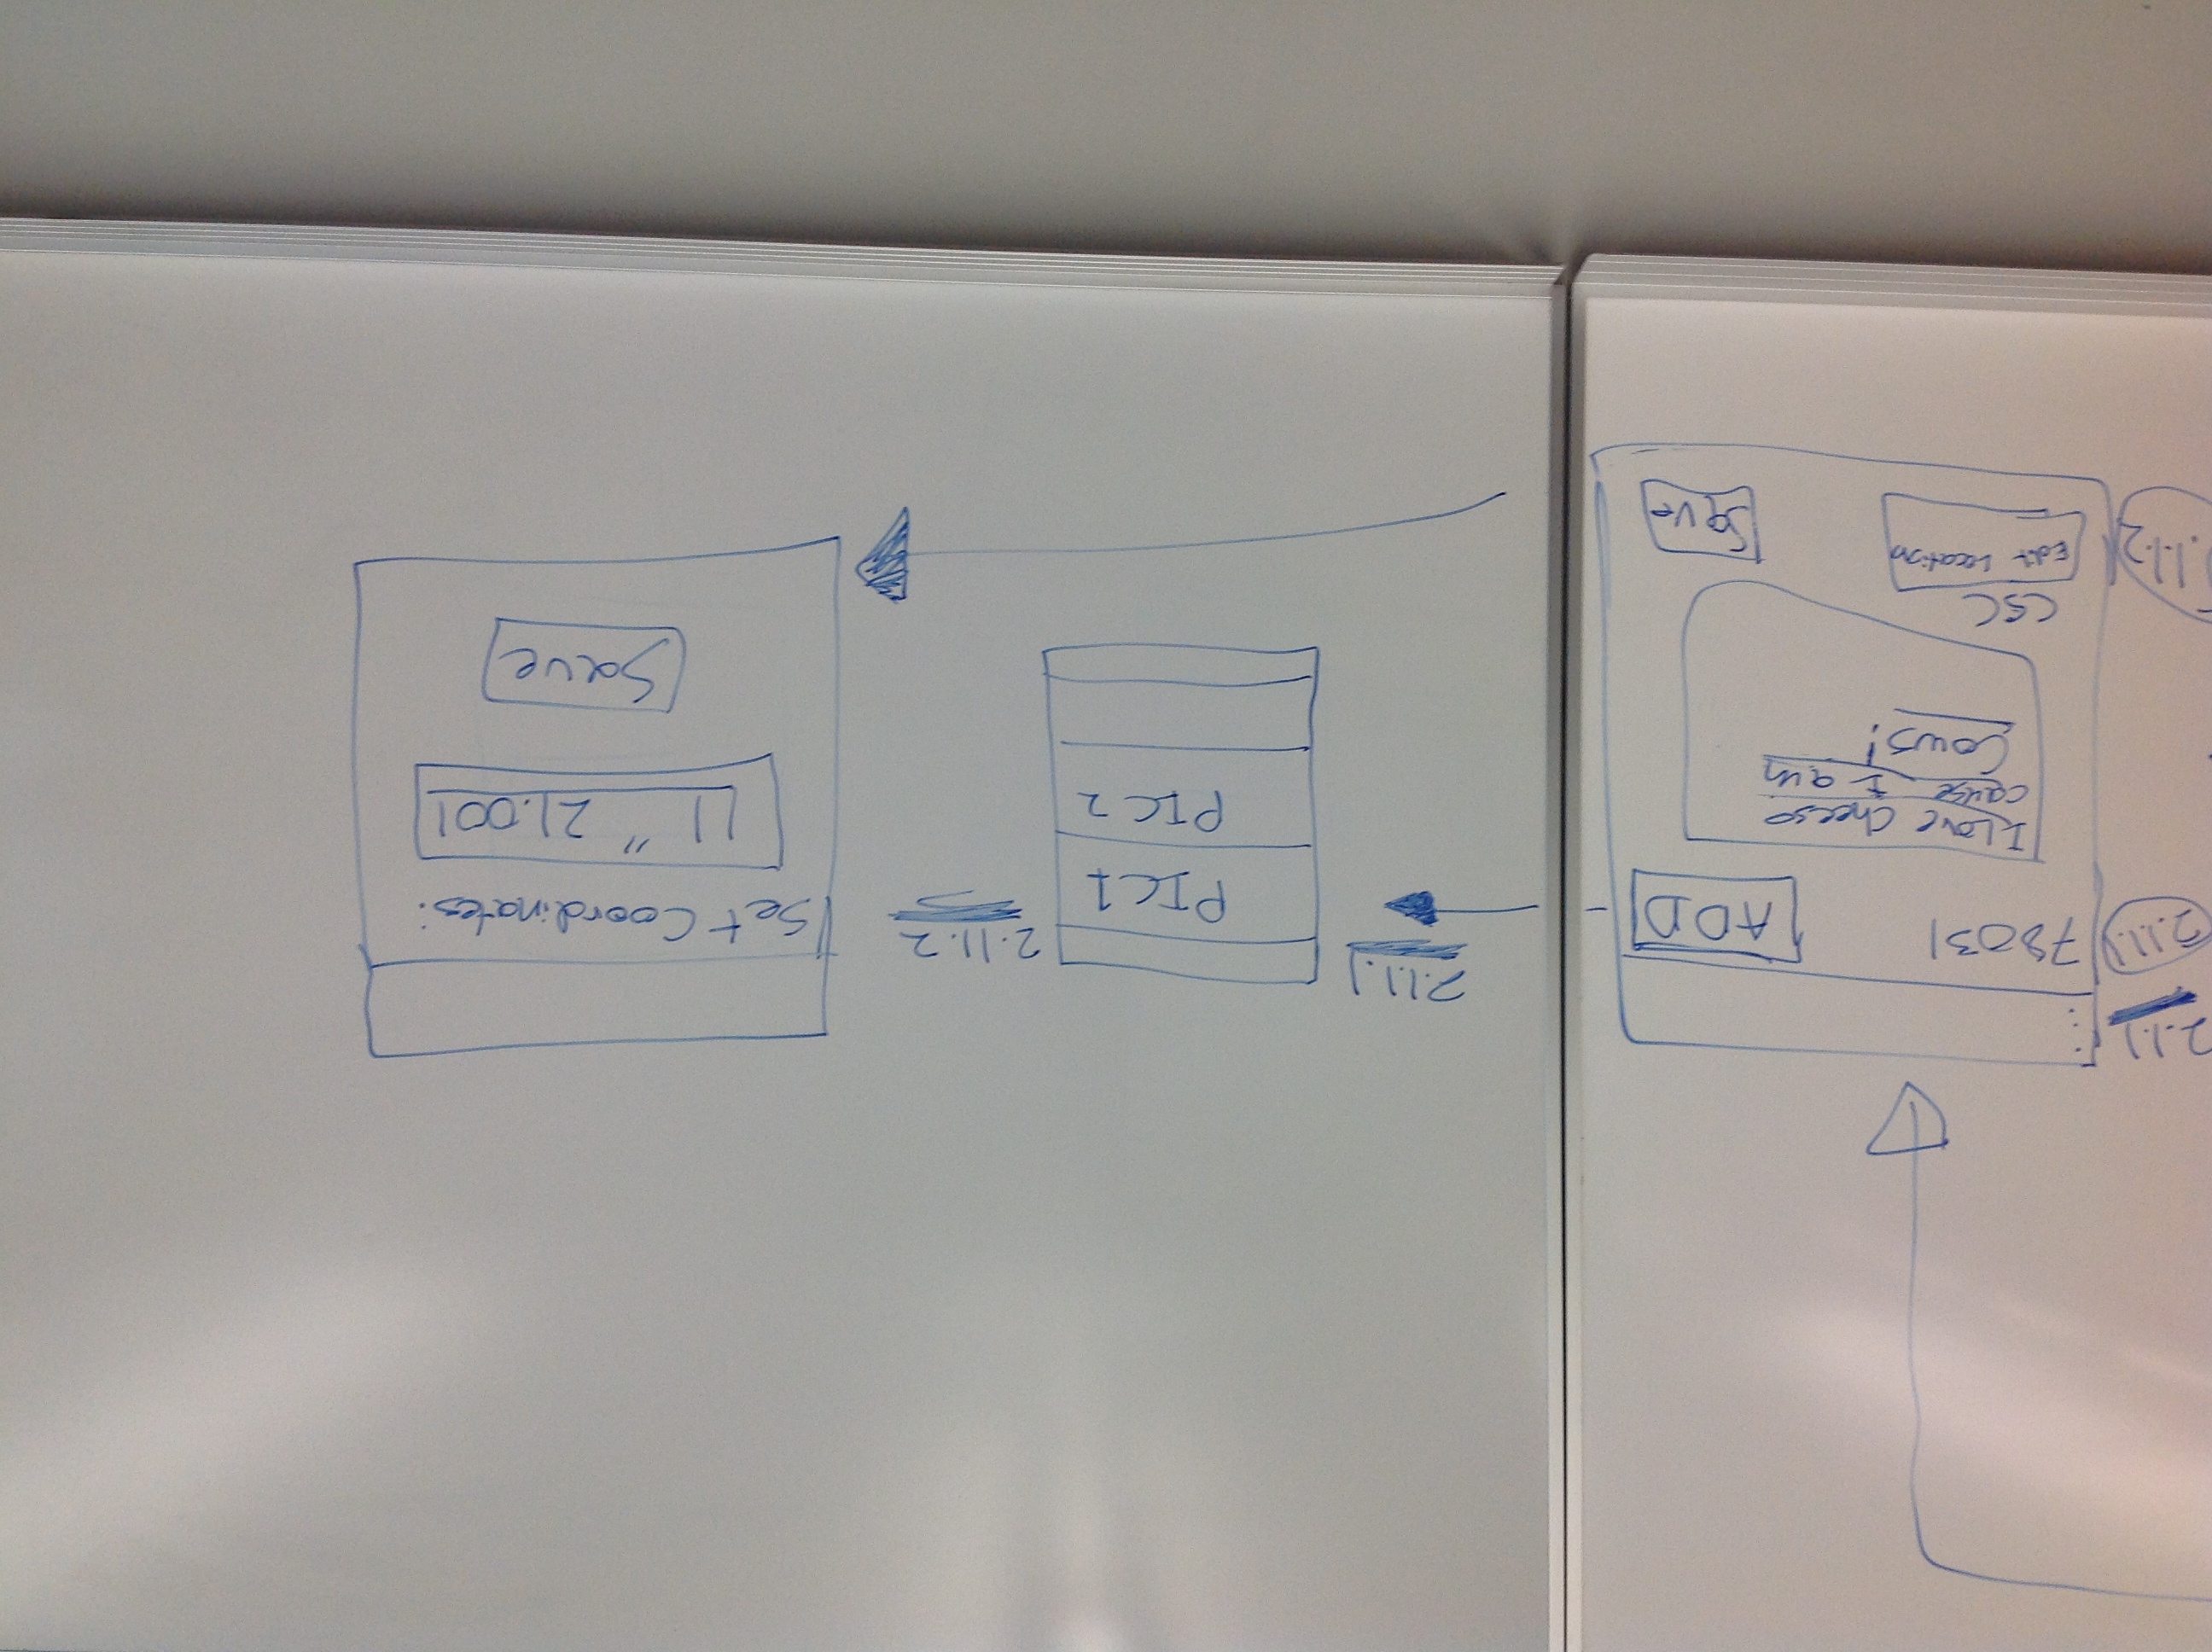 2.1.1
2.1.1.1
78031
ADD
I Love Cheese
cause I am
Cows!
CSC
Edit Location
Save
.1.1.2
2.1.1.1
PIC1
PIC2
2.11.2
Set Coordinates:
11 " 21.001
Save